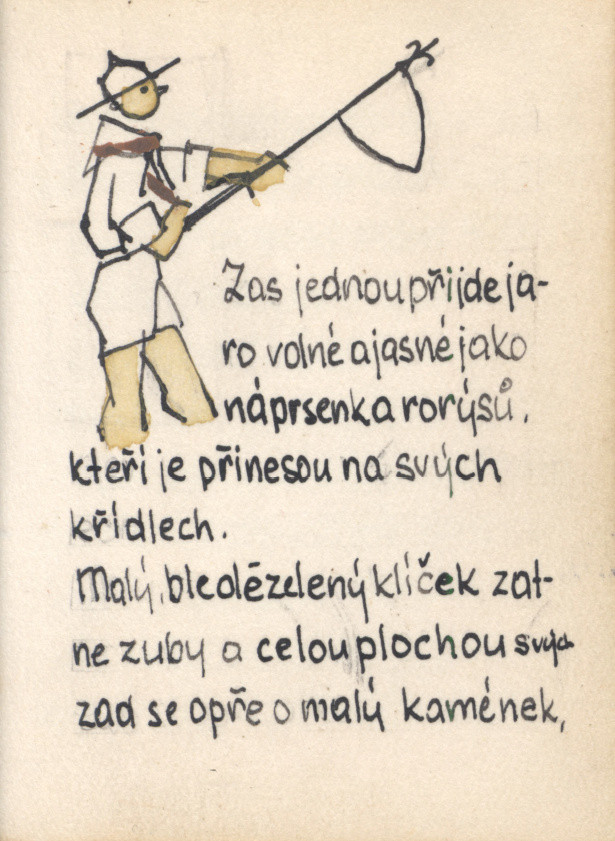 Zas jednou přijde ja-
ro volné a jasné jako
náprsenka rorýsů,
kteří je přinesou na svých
křídlech.
Malý, bleděězelený klíček zat-
ne zuby a celou plochou svých
zad se opře o malý kamének,